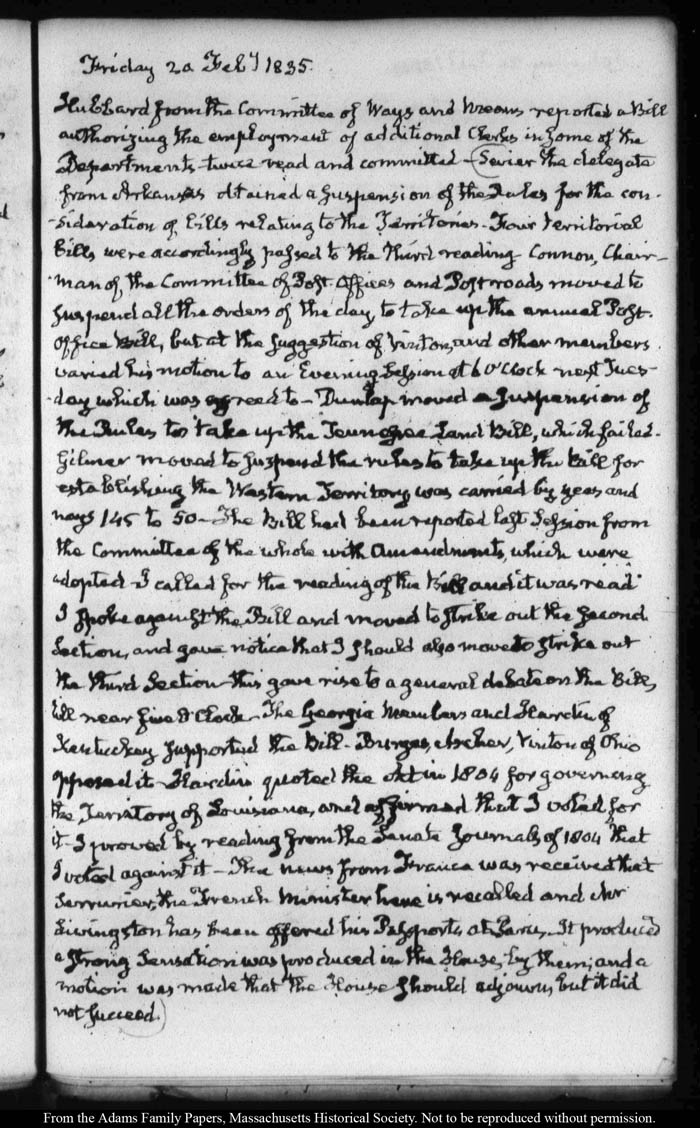 Friday 20 Feby 1835.
Hubbard from the Committee of Ways and Means reported a Bill
authorizing the employment of additional Clerks in some of the
Departments twice read and committed – (Sevier the delegate
from Arkansas obtained a suspension of the Rules for the con-
-sideration of bills relating to the Territories – Four territorial
bills were accordingly passed to the third reading Connor, Chair-
man of the Committee of Post Offices and Post roads moved to
suspend all the orders of the day to take up the annual Post-
office Bill, but at the suggestion of Vinton, and other members
varied his motion to an Evening Session at 6 O'Clock next Tues-
-day which was agreed to – Dunlap moved a suspension of
the Rules to take up the Tennessee Land Bill, which failed –
Gilmer moved to suspend the rules to take up the Bill for
establishing the Western Territory was carried by yeas and
nays 145 to 50 – The Bill had been reported last Session from
the Committee of the whole with Amendments, which were
adopted – I called for the reading of the Bill and it was read
I spoke against the Bill and moved to strike out the second
Section, and gave notice that I should also move to strike out
the third Section – this gave rise to a general debate on the Bill,
till near five O'Clock – The Georgia Members and Hardin of
Kentuckey supported the Bill – Burges, Archer, Vinton of Ohio
opposed it – Hardin quoted the Act in 1804 for governing
the Territory of Louisiana, and affirmed that I voted for
it – I proved by reading from the Senate Journals of 1804 that
I voted against it – The news from France was received that
Serrurier, the French Minister here is recalled and Mr
Livingston has been offered his Passports at Paris – It produced
a strong Sensation was produced in the House, by them; and a
motion was made that the House should adjourn, but it did
not succeed.)
From the Adams Family Papers, Massachusetts Historical Society. Not to be reproduced without permission.